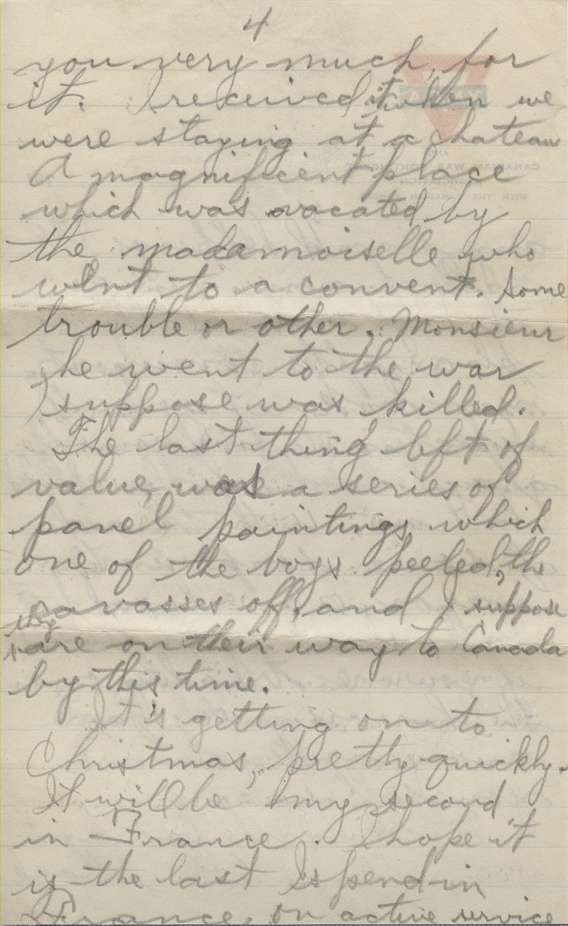 4
you very much, for
it. I received it when we
were staying at a chateau
A magnificent place
which was vacated by
the madamoiselle who
went to a convent. Some
trouble or other. Monsieur
he went to the war
I suppose was killed.
The last thing left of
value, was a series of
panel paintings which
one of the boys peeled, the
cavasses off, and I suppose
they are on their way to Canada
by this time.
It's getting on to
Christmas, pretty quickly.
It will be my second
in France. I hope it
is the last I spend in
France, on active service